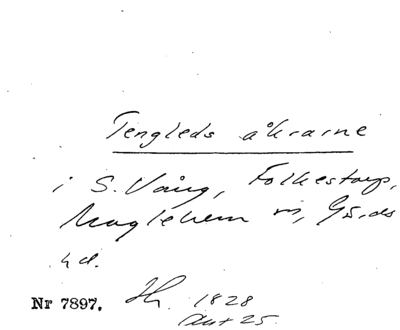 Tengleds åkrarne
i S. Vång, Folkestorp,
Maglehem sn, Gärds
hd.
Nr 7897. Hh. 1828
Akt 25.